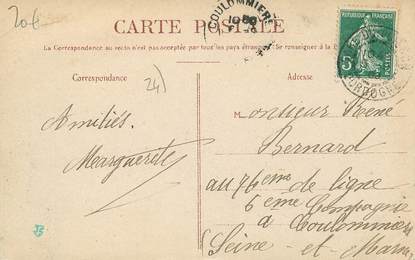 20 f
COULOMMIERS
CARTE POSTALE
La Correspondance au recto n'est pas acceptée par tous les pays étrangers. Se renseigner à la
RÉPUBLIQUE FRANÇAISE
5
POSTES
DORDOGNE
Correspondance
24)
Adresse
Amitiés.
Marguerite
Monsieur René
Bernard
au 76eme de ligne
6eme Compagnie
a Coulommiers
Seine-et-Marne